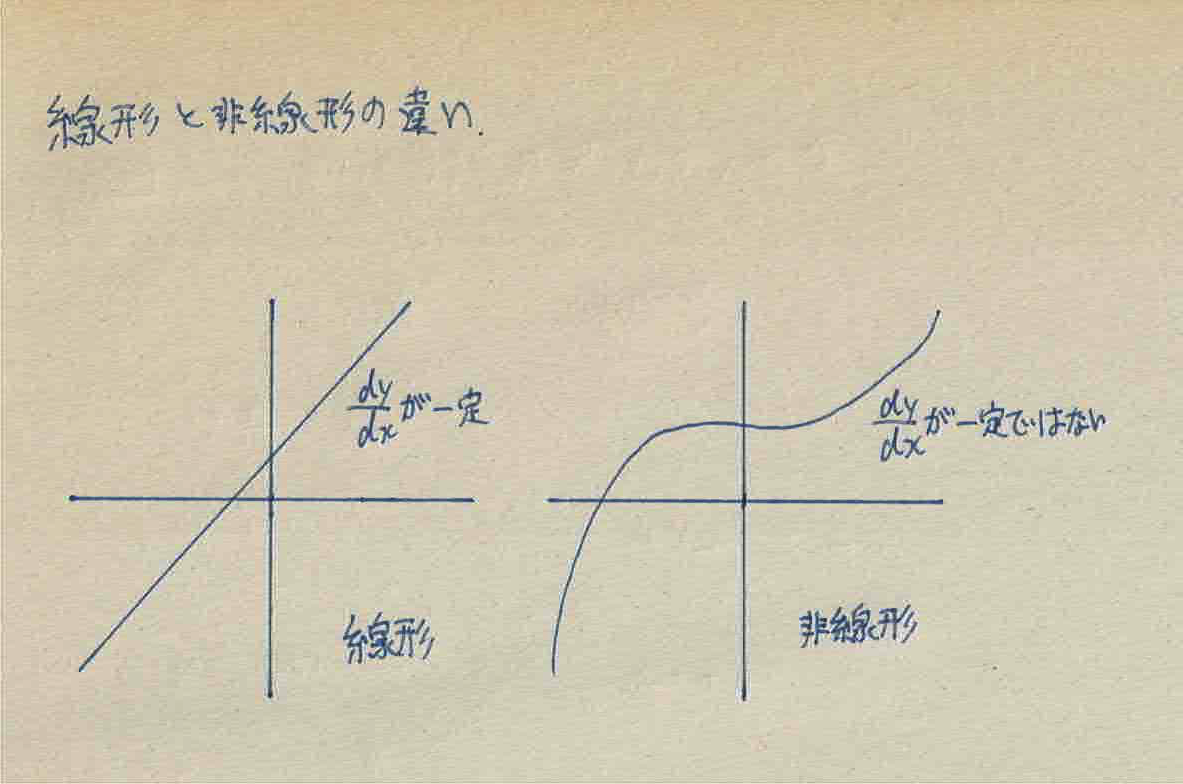 線形と非線形の違い.
dy/dxが一定
dy/dxが一定ではない
線形
非線形